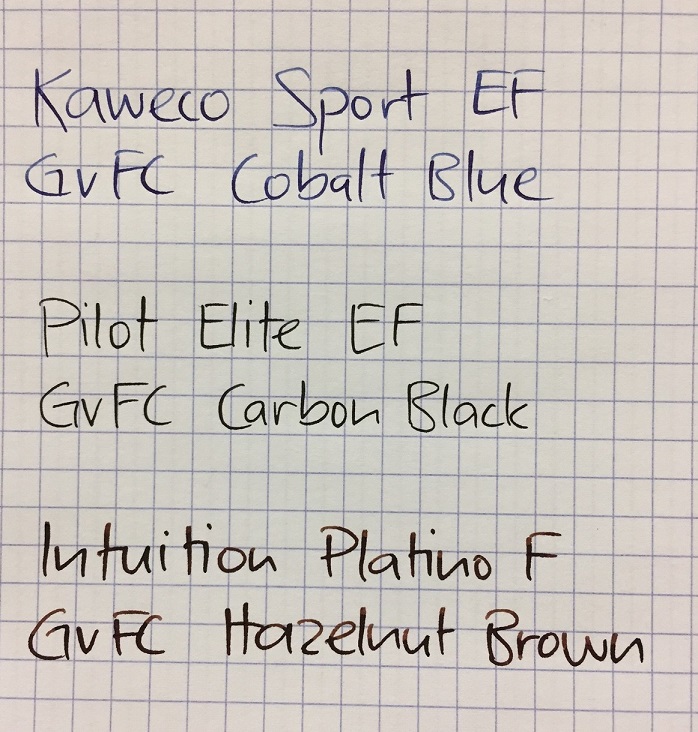 Kaweco Sport EF
GvFC Cobalt Blue
Pilot Elite EF
GvFC Carbon Black
Intuition Platino F
GvFC Hazelnut Brown